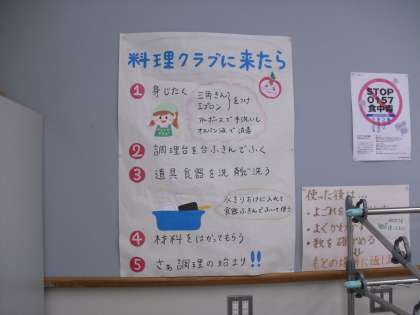 料理クラブに来たら
① 身じたく
三角きん
エプロン
をつけ
アルボースで手洗いし
オスバン液で消毒
② 調理台を台ふきんでふく
③ 道具食器を洗剤で洗う
水きりおけに入れて
食器ふきんでふいて使う
④ 材料をはかってもらう
⑤ さぁ調理の始まり!!
STOP
O157
食中毒
使った後は…
・よごれを
・よくかわ
・数を確かめる
もとの場所に返し